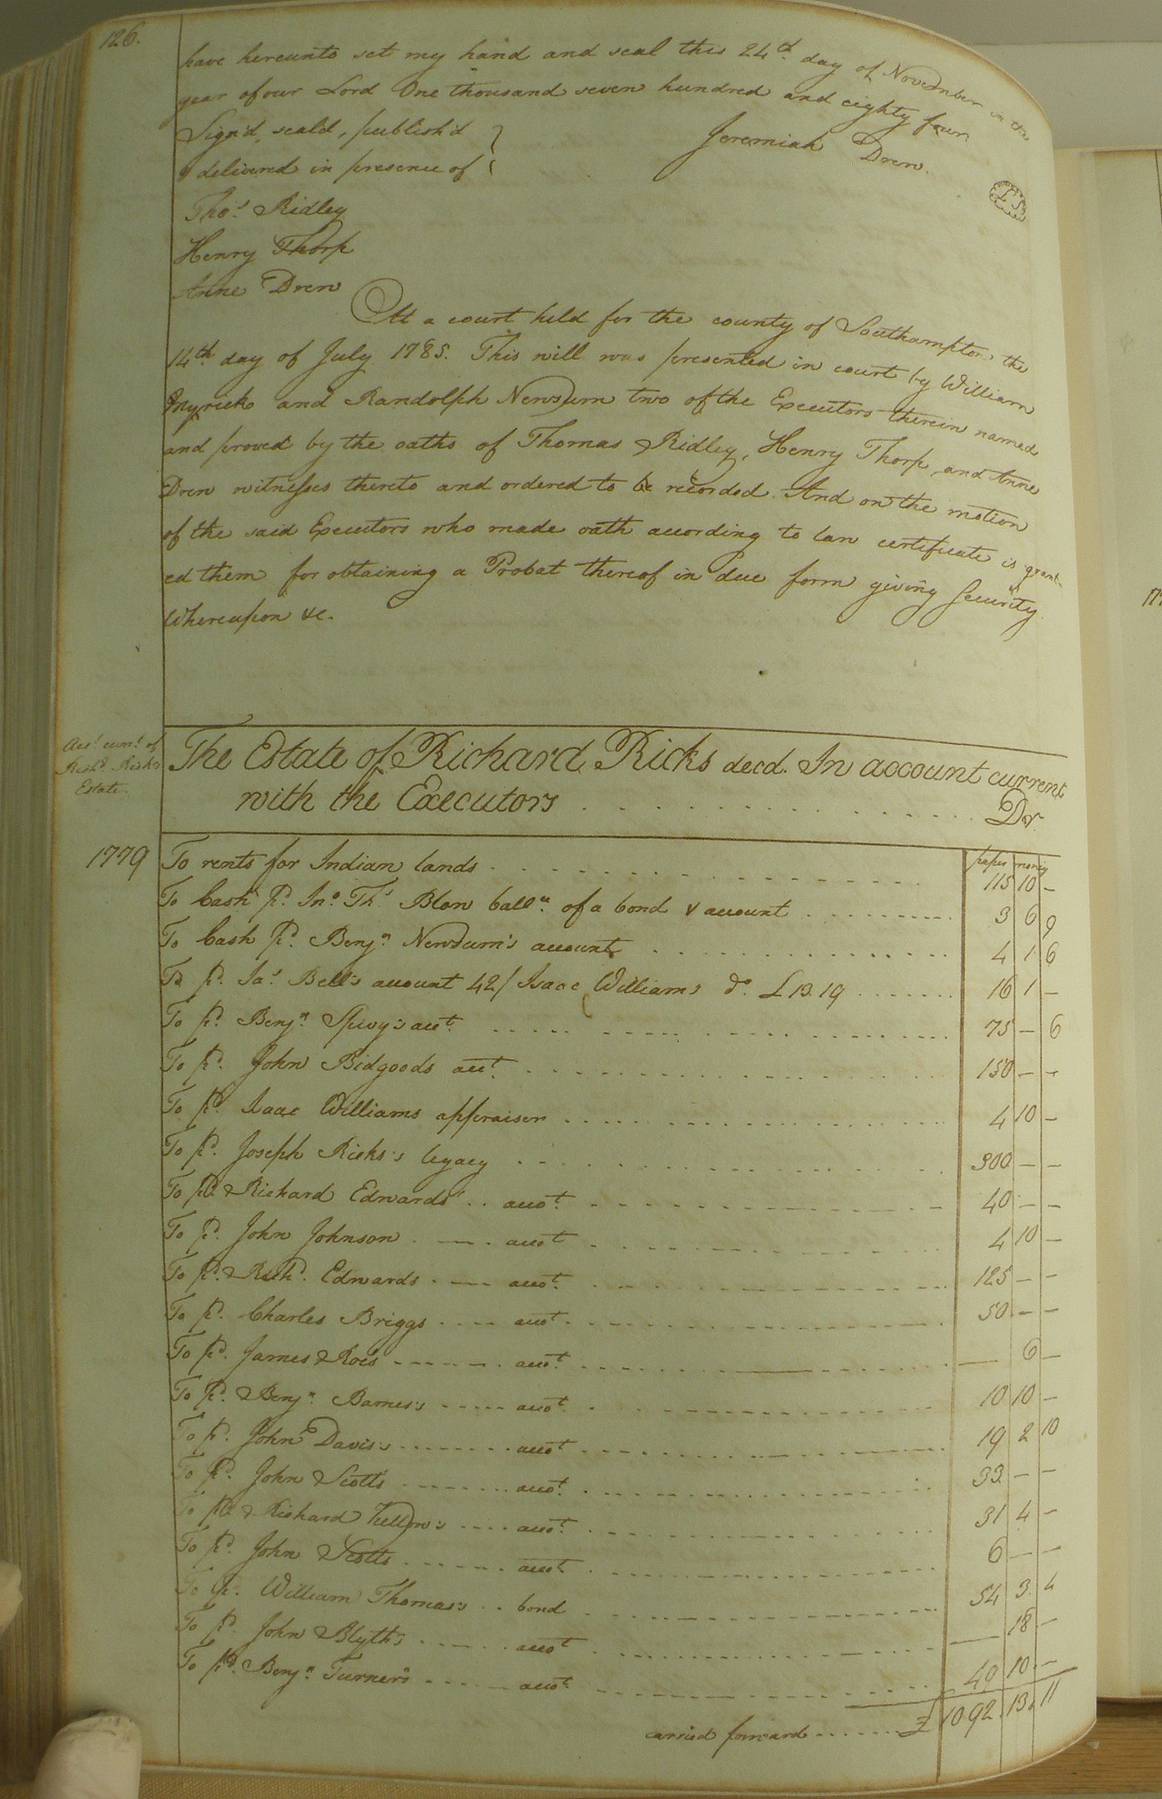 126.
have hereunto set my hand and seal this 24th day of November in the
year of our Lord One thousand seven hundred and eighty four
Sign'd, seald, publish'd
& delivered in presence of
Jeremiah Drew.
LS
Thos. Ridley
Henry Thorp
Anne Drew
At a court held for the county of Southampton the
14th day of July 1785. This will was presented in court by William
Myrick and Randolph Newsum two of the Executors therein named
and proved by the oaths of Thomas Ridley, Henry Thorp, and Anne
Drew witnesses thereto and ordered to be recorded. And on the motion
of the said Executors who made oath according to law certificate is grant-
ed them for obtaining a Probat thereof in due form giving Security
Whereupon &c.
Acct. curr.t of
Richd. Ricks
Estate.
The Estate of Richard Ricks decd. In account current
with the Executors . . . . . Dr
paper money
1779 To rents for Indian lands 115 10 -
To Cash pd. Jno. Ths. Blow ballce. of a bond & account 3 6 9
To Cash pd. Benjn. Newsum's account 4 1 6
To pd. Jas. Bell's account 42/ Isaac Williams do. £13.19 16 1 -
To pd. Benjn. Spivy's acct. 75 - 6
To pd. John Bidgoods acct. 150 - -
To pd. Isaac Williams appraiser 4 10 -
To pd. Joseph Ricks's legacy 300 - -
To pd. Richard Edwards' acct. 40 - -
To pd. John Johnson acct 4 10 -
To pd. Richd. Edwards acct. 125 - -
To pd. Charles Briggs acct. 50 - -
To pd. James Roes acct. - 6 -
To pd. Benjn. Barnes's acct. 10 10 -
To pd. John Davis's acct 19 2 10
To pd. John Scotts acct. 33 - -
To pd. Richard acct. 31 4 -
To pd. John Scotts acct. 6 - -
To pd. William Thomas's bond 54 3 4
To pd. John Blyth's acct - 18 -
To pd. Benjn. Turner's acct. 40 10 -
carried forward £ 1092 13 11